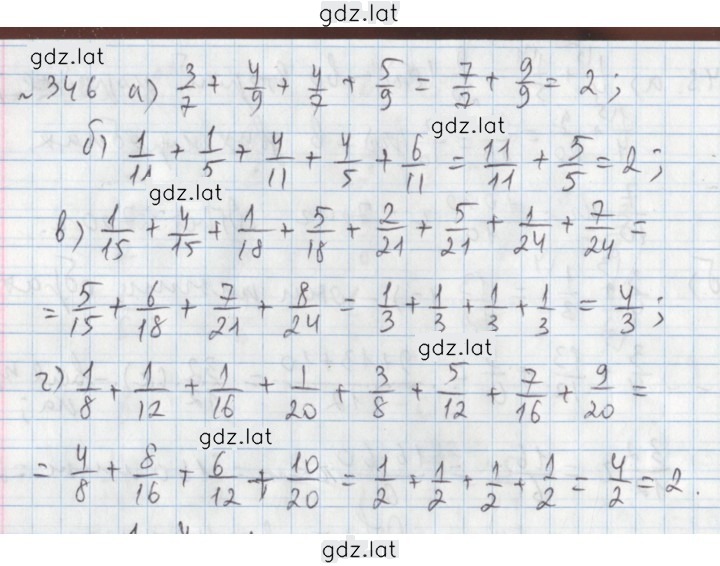 gdz.lat
gdz.lat
№ 346 а) 3/7 + 4/9 + 4/7 + 5/9 = 7/7 + 9/9 = 2;
gdz.lat
б) 1/11 + 1/5 + 4/11 + 4/5 + 6/11 = 11/11 + 5/5 = 2;
gdz.lat
в) 1/15 + 4/15 + 1/18 + 5/18 + 2/21 + 5/21 + 1/24 + 7/24 =
= 5/15 + 6/18 + 7/21 + 8/24 = 1/3 + 1/3 + 1/3 + 1/3 = 4/3;
gdz.lat
г) 1/8 + 1/12 + 1/16 + 1/20 + 3/8 + 5/12 + 7/16 + 9/20 =
gdz.lat
= 4/8 + 8/16 + 6/12 + 10/20 = 1/2 + 1/2 + 1/2 + 1/2 = 4/2 = 2.
gdz.lat